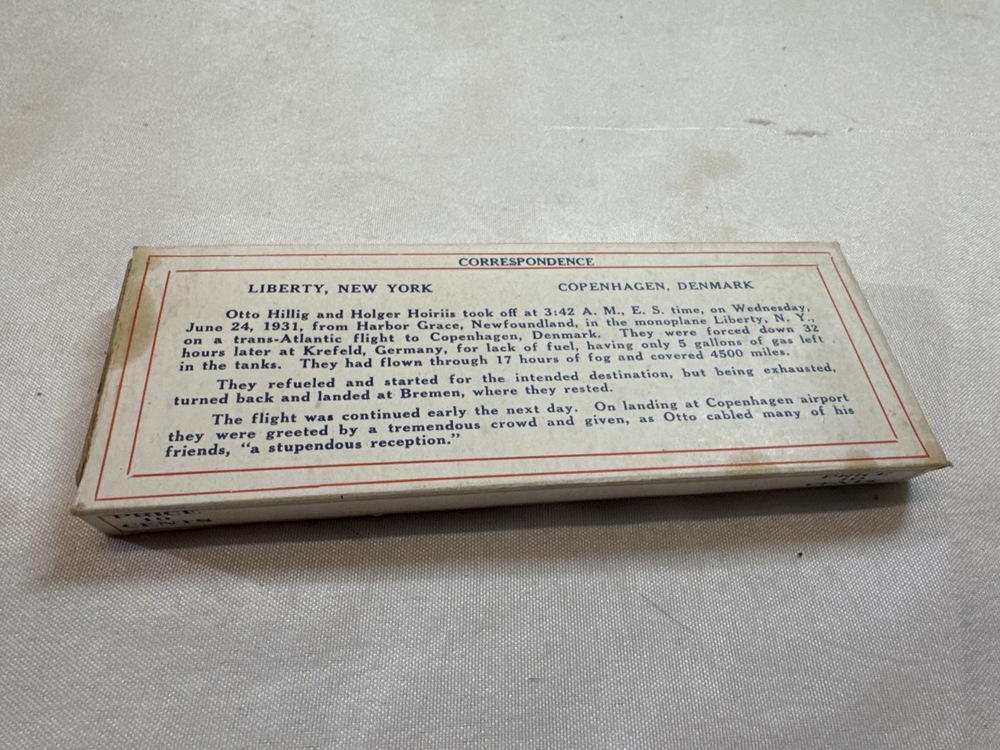 CORRESPONDENCE
LIBERTY, NEW YORK COPENHAGEN, DENMARK
Otto Hillig and Holger Hoiriis took off at 3:42 A. M., E. S. time, on Wednesday,
June 24, 1931, from Harbor Grace, Newfoundland, in the monoplane Liberty, N. Y.,
on a trans-Atlantic flight to Copenhagen, Denmark. They were forced down 32
hours later at Krefeld, Germany, for lack of fuel, having only 5 gallons of gas left
in the tanks. They had flown through 17 hours of fog and covered 4500 miles.
They refueled and started for the intended destination, but being exhausted,
turned back and landed at Bremen, where they rested.
The flight was continued early the next day. On landing at Copenhagen airport
they were greeted by a tremendous crowd and given, as Otto cabled many of his
friends, “a stupendous reception.”
PRICE
CENTS